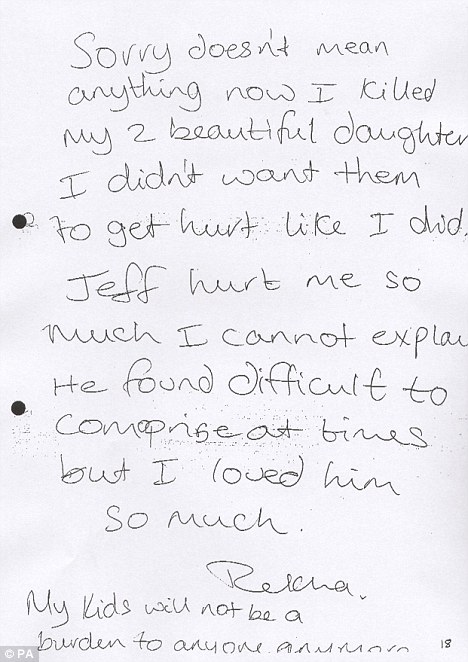 Sorry doesn't mean
anything now I killed
my 2 beautiful daughter
I didn't want them
to get hurt like I did.
Jeff hurt me so
much I cannot explai
He found difficult to
comprise at times
but I loved him
so much.
Rekha.
My kids will not be a
burden to anyone anymore
18
© PA